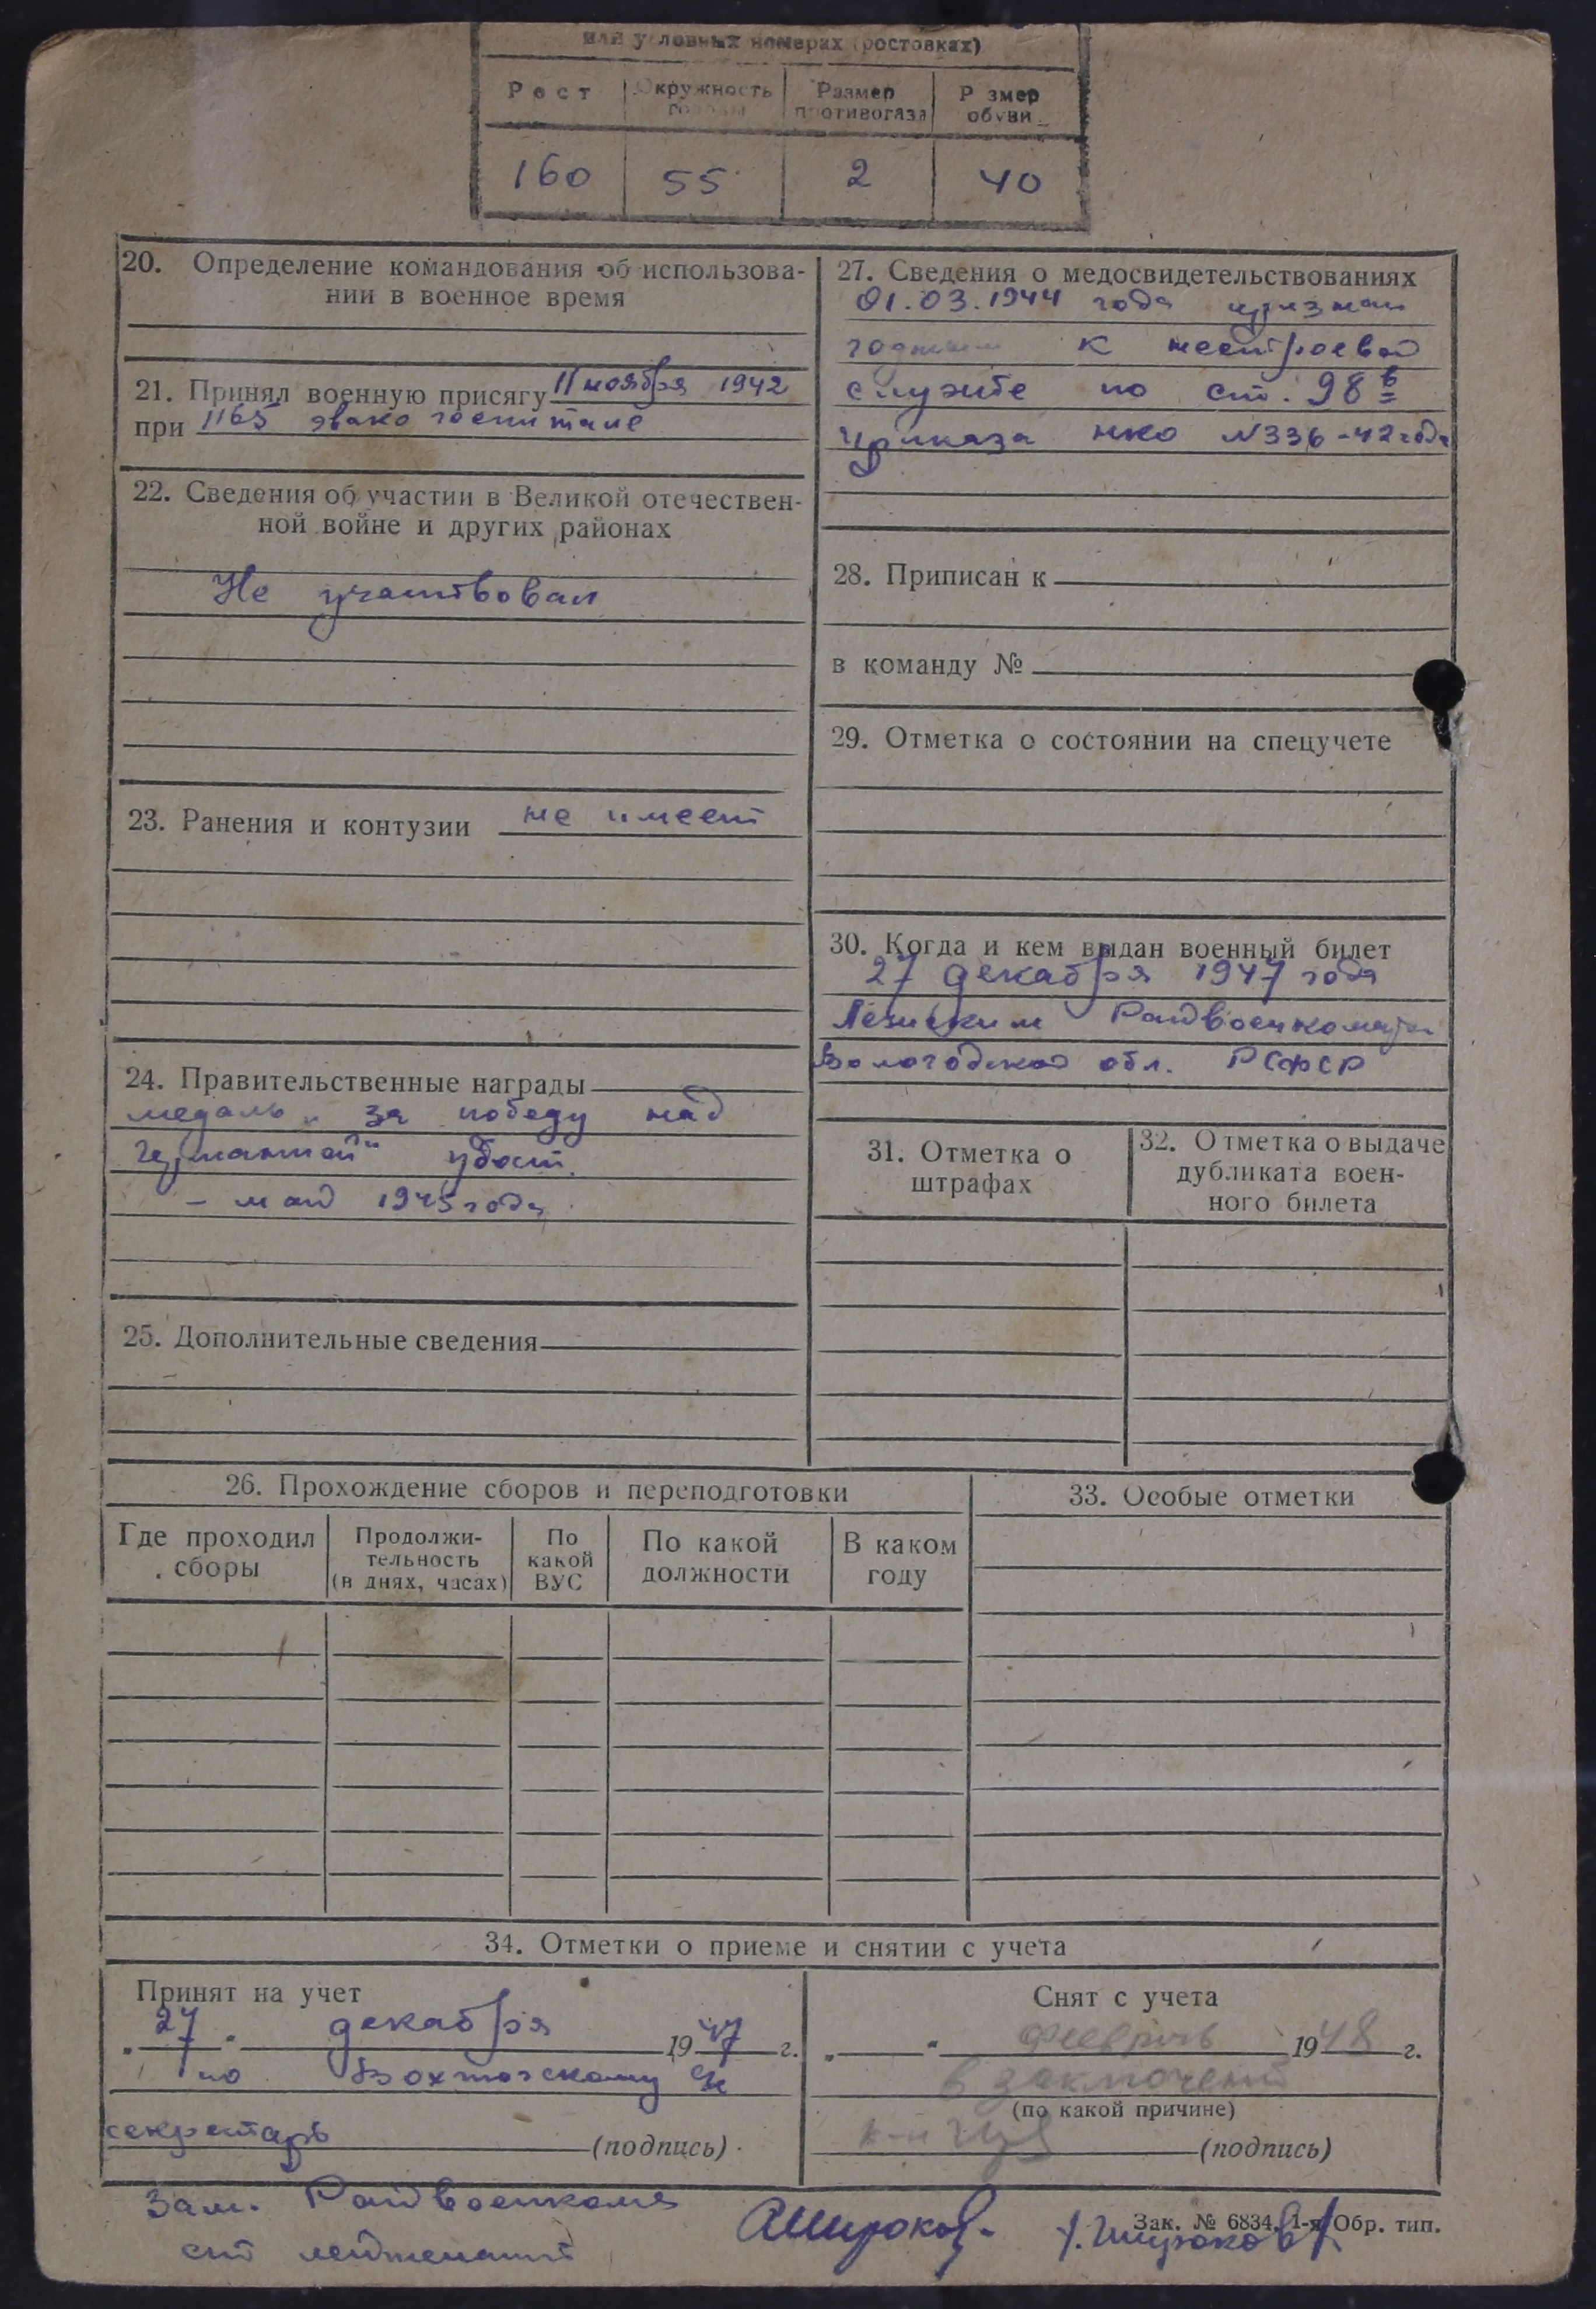 или условных номерах (ростовках)
Рост Окружность головы Размер противогаза Р змер обуви
160 55 2 40
20. Определение командования об использова-
нии в военное время
21. Принял военную присягу 11 ноября 1942
при 1165 эвако госпитале
22. Сведения об участии в Великой отечествен-
ной войне и других районах
Не участвовал
23. Ранения и контузии не имеет
24. Правительственные награды
медаль „за победу над
германией“ удост.
- май 1945 года
25. Дополнительные сведения
27. Сведения о медосвидетельствованиях
01.03.1944 года признан
годным к нестроевой
службе по ст. 98 в
приказа НКО №336-42 года
28. Приписан к
в команду №
29. Отметка о состоянии на спецучете
30. Когда и кем выдан военный билет
27 декабря 1947 года
Райвоенкоматом
Вологодской обл. РСФСР
31. Отметка о
штрафах
32. Отметка о выдаче
дубликата воен-
ного билета
26. Прохождение сборов и переподготовки
Где проходил
сборы
Продолжи-
тельность
(в днях, часах)
По
какой
ВУС
По какой
должности
В каком
году
33. Особые отметки
34. Отметки о приеме и снятии с учета
Принят на учет
„27“ декабря 1947 г.
по Вохтожскому
секретарь (подпись)
Снят с учета
„ “ февраль 1948 г.
в заключении
(по какой причине)
к-н (подпись)
Зам. Райвоенкома
ст лейтенант
АШироков
Широков
Зак. № 6834. 1-я Обр. тип.